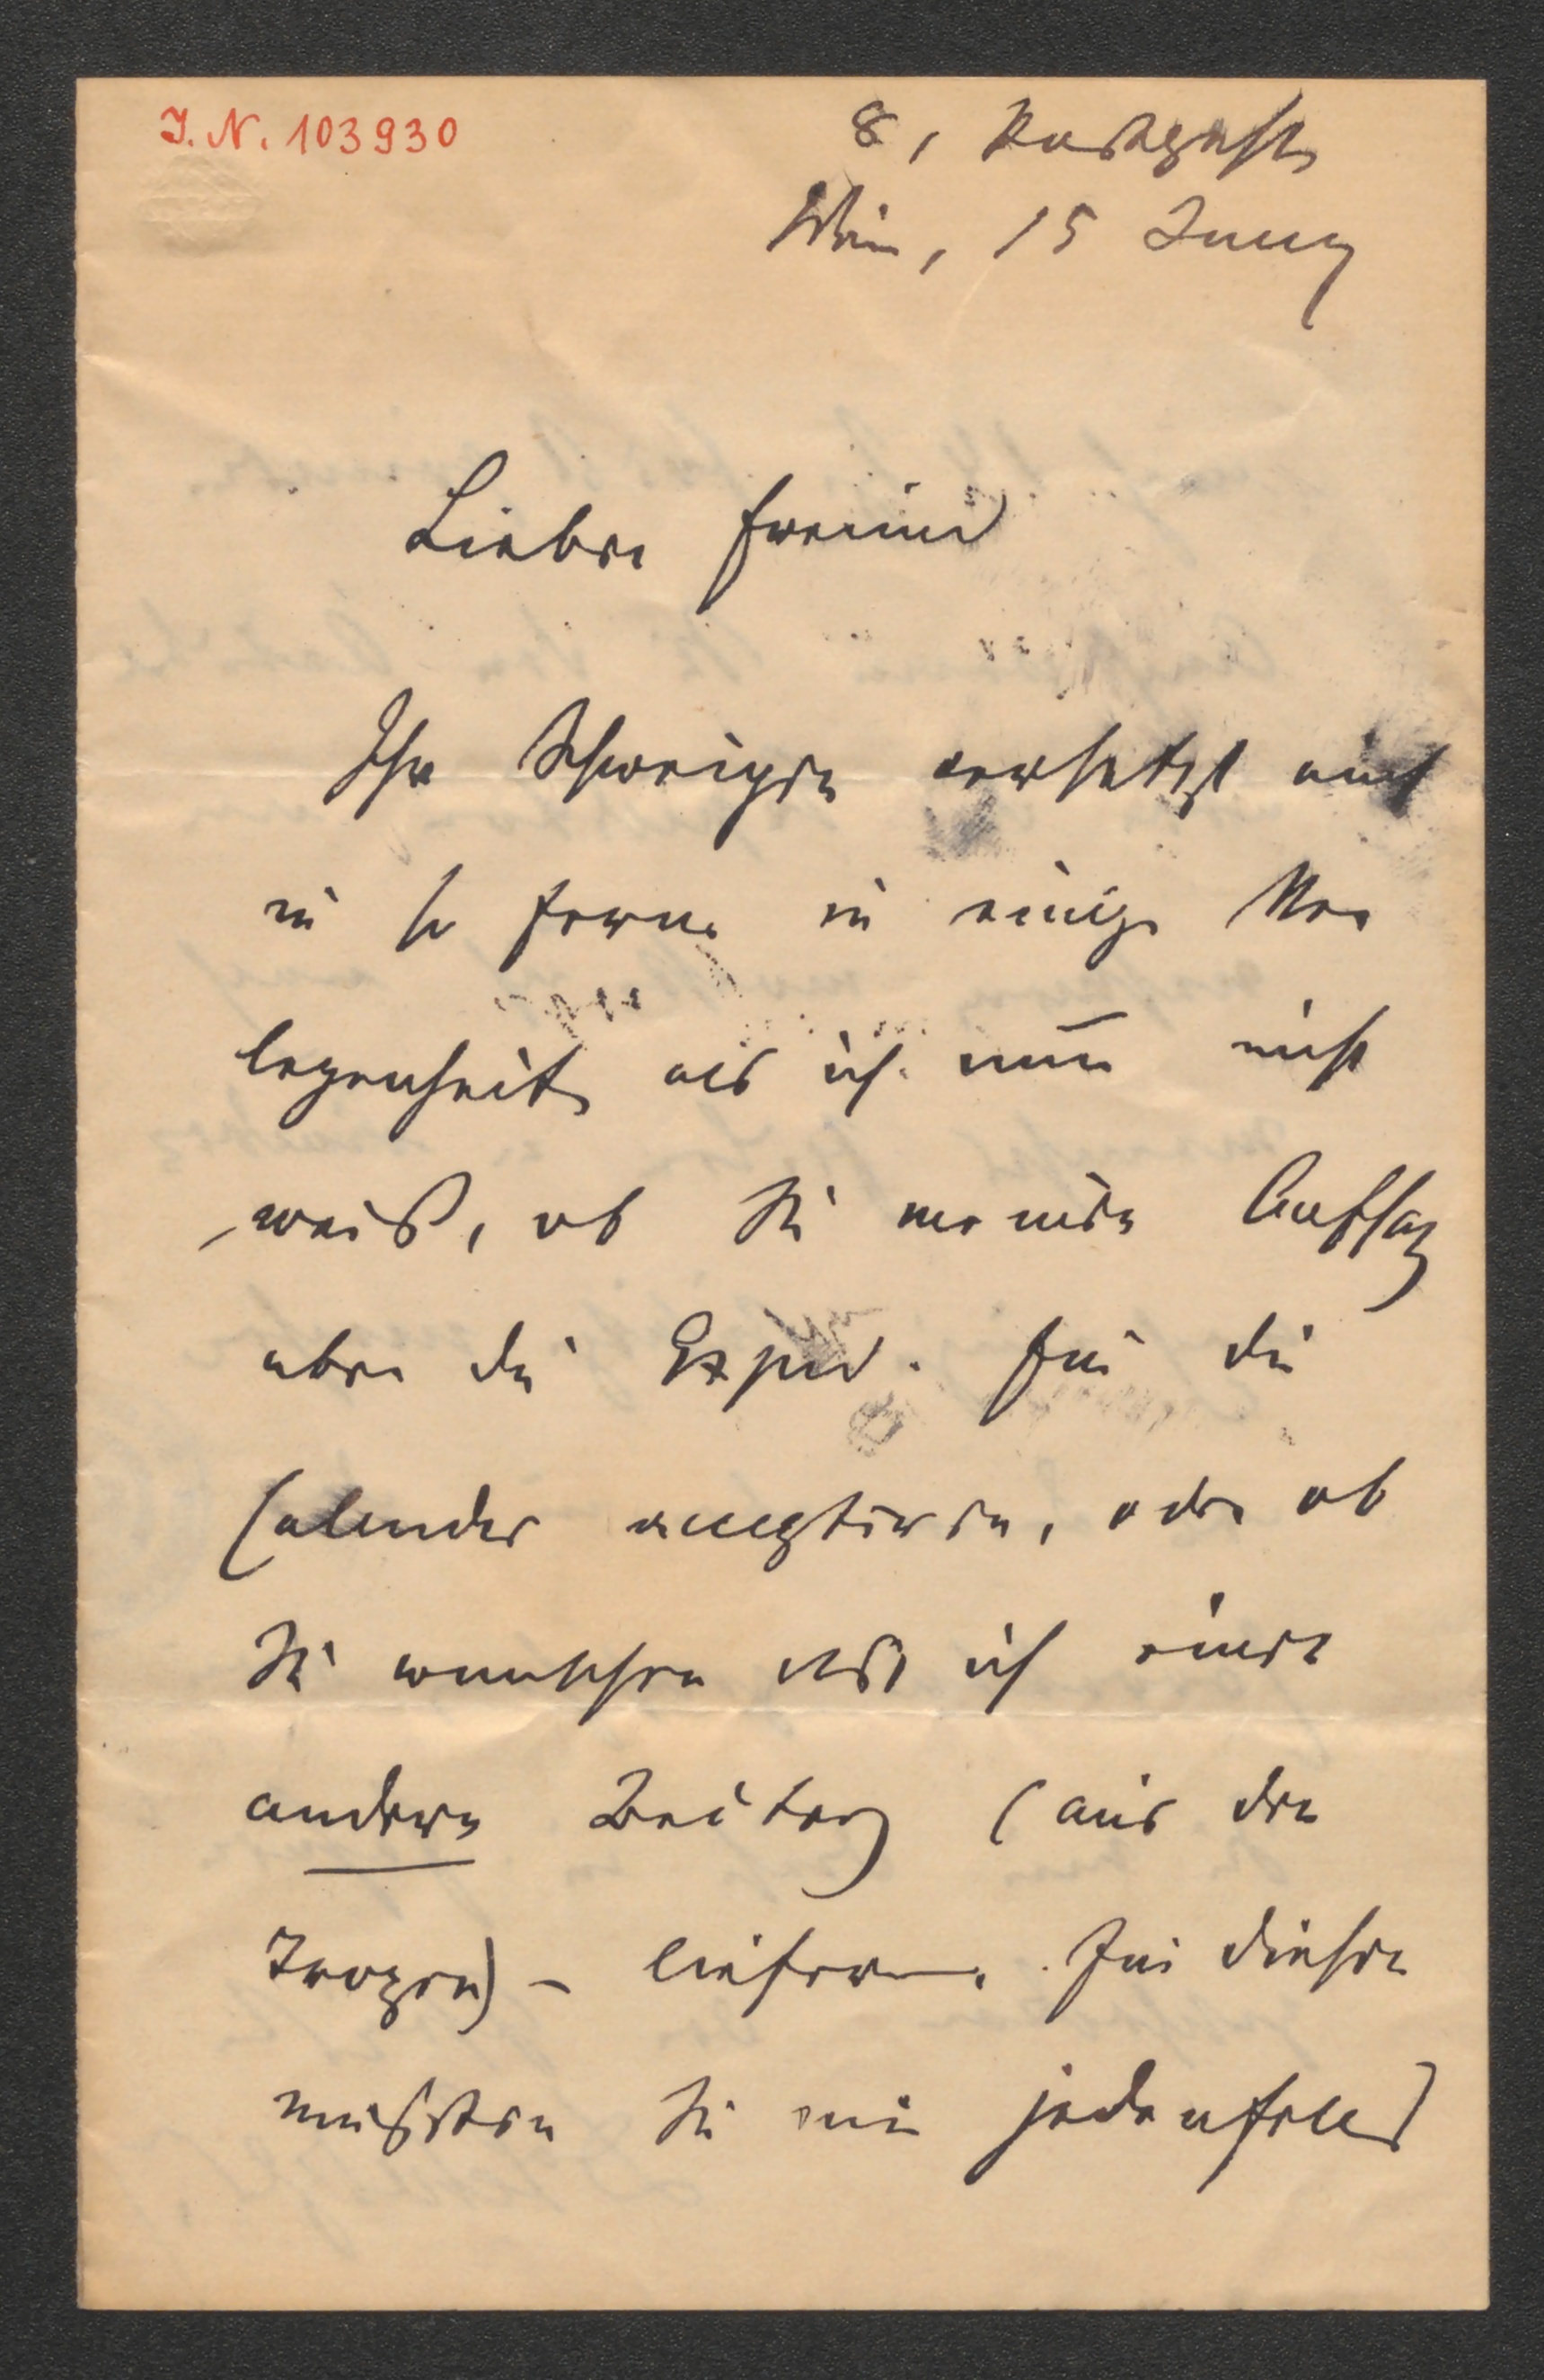 I. N. 103930
8,
Wien, 15 Juny
Lieber Freund
Ihr Schweigen versetzt mich
in so ferne in einige Ver
legenheit als ich nun nicht
weiß, ob Sie meinen Aufsaz
über die Exped. für die
Calender acceptiren, oder ob
Sie wünschen daß ich einen
andern Beitrag (aus den
Tropen) – liefere. Für diesen
müßten Sie mir jedenfalls